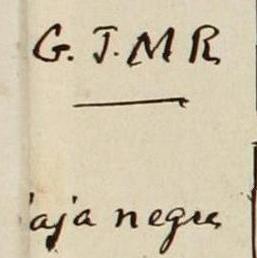 G. J. M R
aja negra